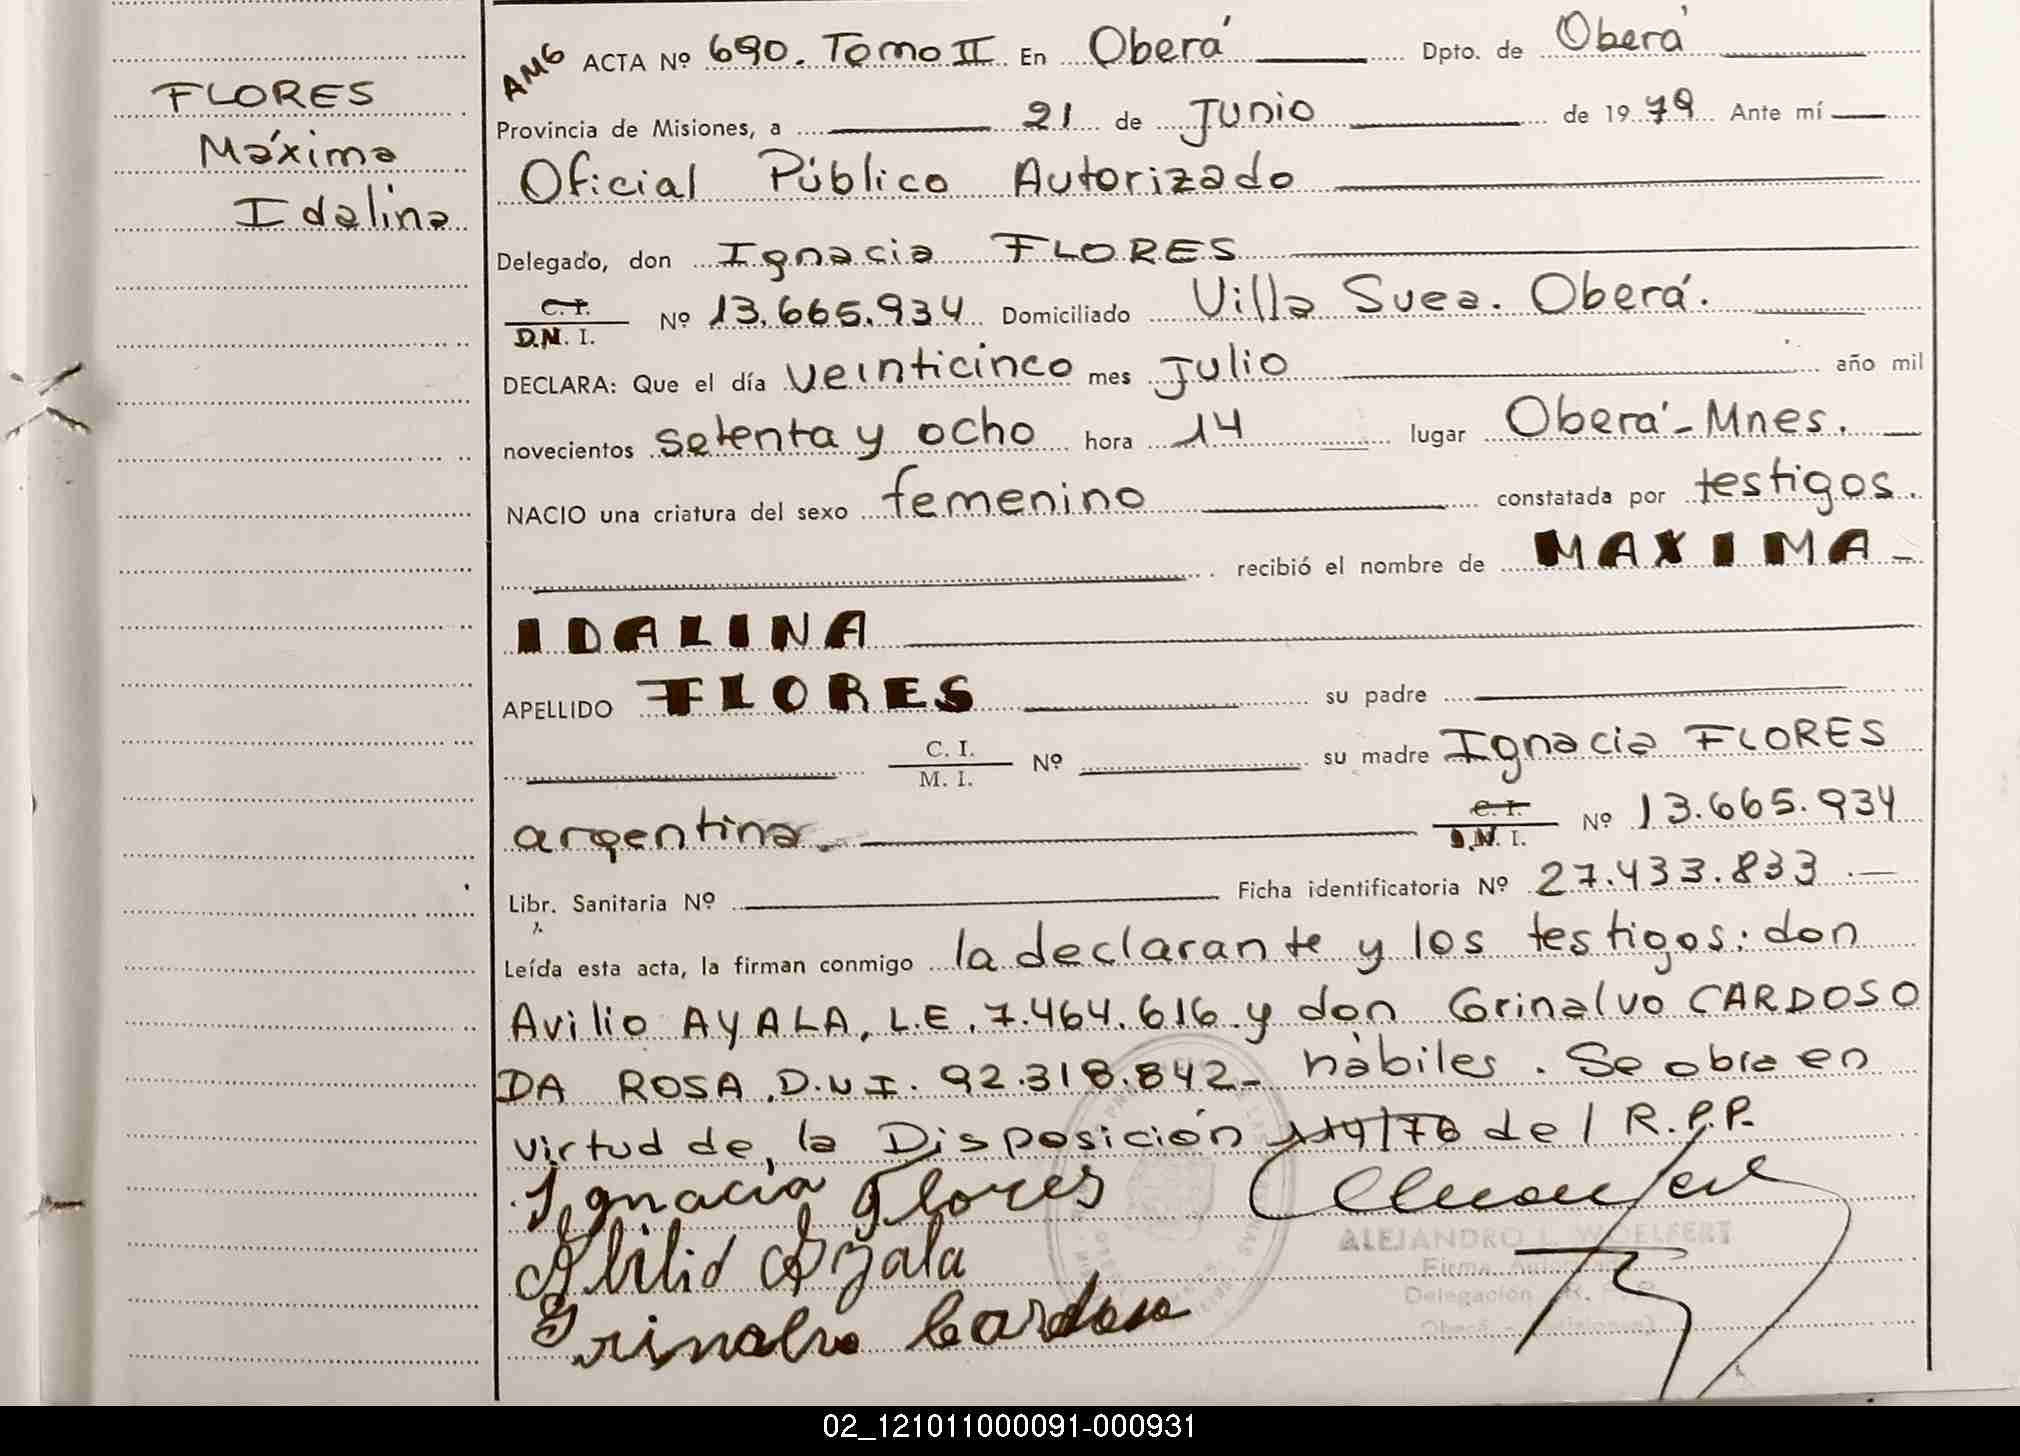 FLORES
Máxima
Idalina
AMG ACTA Nº 690. Tomo II En Oberá Dpto. de Oberá
Provincia de Misiones, a 21 de Junio de 1979 Ante mí
Oficial Público Autorizado
Delegado, don Ignacia FLORES
C.I.
D.N.I. Nº 13.665.934 Domiciliado Villa Suea. Oberá.
DECLARA: Que el día veinticinco mes Julio año mil
novecientos setenta y ocho hora 14 lugar Oberá-Mnes.
NACIO una criatura del sexo femenino constatada por testigos.
recibió el nombre de MAXIMA
IDALINA
APELLIDO FLORES su padre
C. I.
M. I. Nº su madre Ignacia FLORES
argentina.
C.I.
D.N.I. Nº 13.665.934
Libr. Sanitaria Nº Ficha identificatoria Nº 27.433.833.-
Leída esta acta, la firman conmigo la declarante y los testigos: don
Avilio AYALA, L.E. 7.464.616. y don Grinalvo CARDOSO
DA ROSA, D.N.I. 92.318.842- hàbiles. Se obra en
virtud de, la Disposición 114/78 del R.P.P.
Ignacia Flores
Abilio Ayala
Grinalvo Cardoso
ALEJANDRO L. WOELFERT
Firma Autorizada
Delegación R. P. P.
Oberá - (Misiones)
02_121011000091-000931